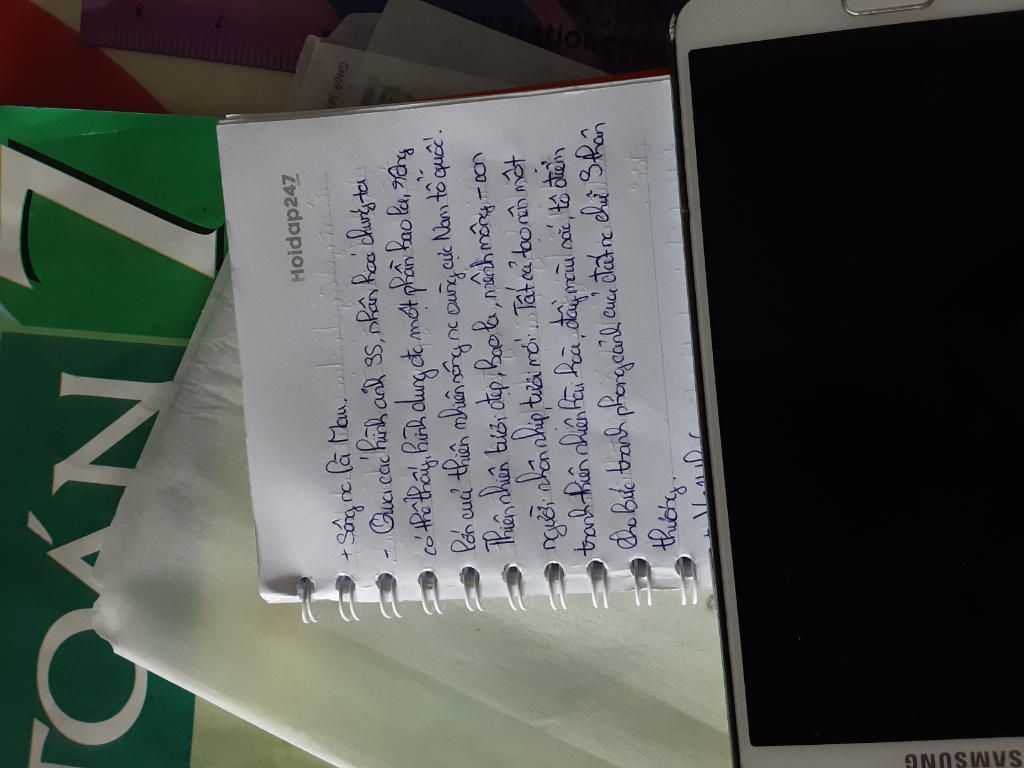 Hoidap247
+ Sông nc Cà Mau.
- Qua các hình ảnh SS, nhân hoá chúng ta
có thể thấy, hình dung đc một phần bao la, rộng
lớn của thiên nhiên sông nc vùng cực Nam tổ quốc.
Thiên nhiên tươi đẹp, bao la, mênh mông, - con
người nhộn nhịp, tươi mới. Tất cả tạo nên một
tranh thiên nhiên hài hoà, đầy màu sắc, tô điểm
cho bức tranh phong cảnh của đất nc chữ S thân
thương.
TOÁN 7
Stationery
SAMSUNG
7
8